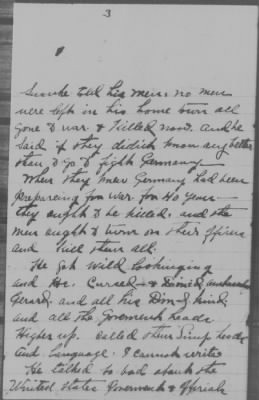 3
told his men. no men
were left in his home town all
gone to war & killed now. and he
said if they didn't know any better
than to go to fight Germany
When they knew Germany had been
prepareing for war for 40 years
they ought to be killed. and the
men ought to turn on their officers
and kill them all.
He got wild looking
and Cursed
Gerard, and all his kind
and all the Goverment heads
Higher up. called them Simp heads
and language I cannot write
He talked so bad about the
United States Goverment & officials